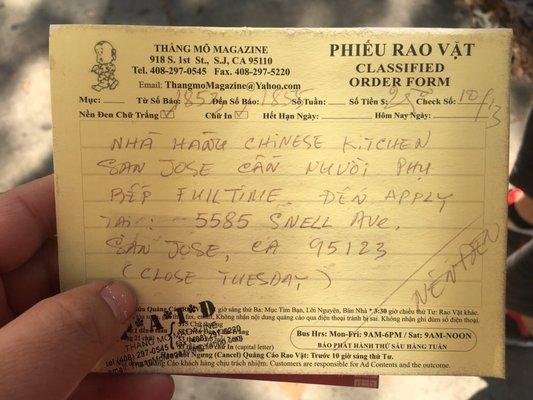 THẰNG MÕ MAGAZINE
918 S. 1st St., S.J, CA 95110
Tel. 408-297-0545 Fax. 408-297-5220
Email: ThangmoMagazine@Yahoo.com
PHIẾU RAO VẶT
CLASSIFIED
ORDER FORM
Mục: Từ Số Báo: 1852 Đến Số Báo: 1855 Số Tuần: Số Tiền $ Check Số: 10/13
Nền Đen Chữ Trắng ✓ Chữ In ✓ Hết Hạn Ngày: Hôm Nay Ngày:
NHÀ HÀNG CHINESE KITCHEN
SAN JOSE CẦN NGƯỜI PHỤ
BẾP FULLTIME ĐẾN APPLY
TẠI: 5585 SNELL AVE,
SAN JOSE, CA 95123
(CLOSE TUESDAY)
NỀN ĐEN
giờ sáng thứ Ba: Mục Tìm Bạn, Lời Nguyện, Bán Nhà * 3:30 giờ chiều thứ Tư: Rao Vặt khác.
Không nhận nội dung quảng cáo qua điện thoại tránh bị sai. Không nhận ghi dùm số điện thoại.
THANG MO
tel (408) 297-0545
Bus Hrs: Mon-Fri: 9AM-6PM / Sat: 9AM-NOON
BÁO PHÁT HÀNH THỨ SÁU HÀNG TUẦN
Ngưng (Cancel) Quảng Cáo Rao Vặt: Trước 10 giờ sáng thứ Tư.
Khách hàng chịu trách nhiệm. Customers are responsible for Ad Contents and the outcome.